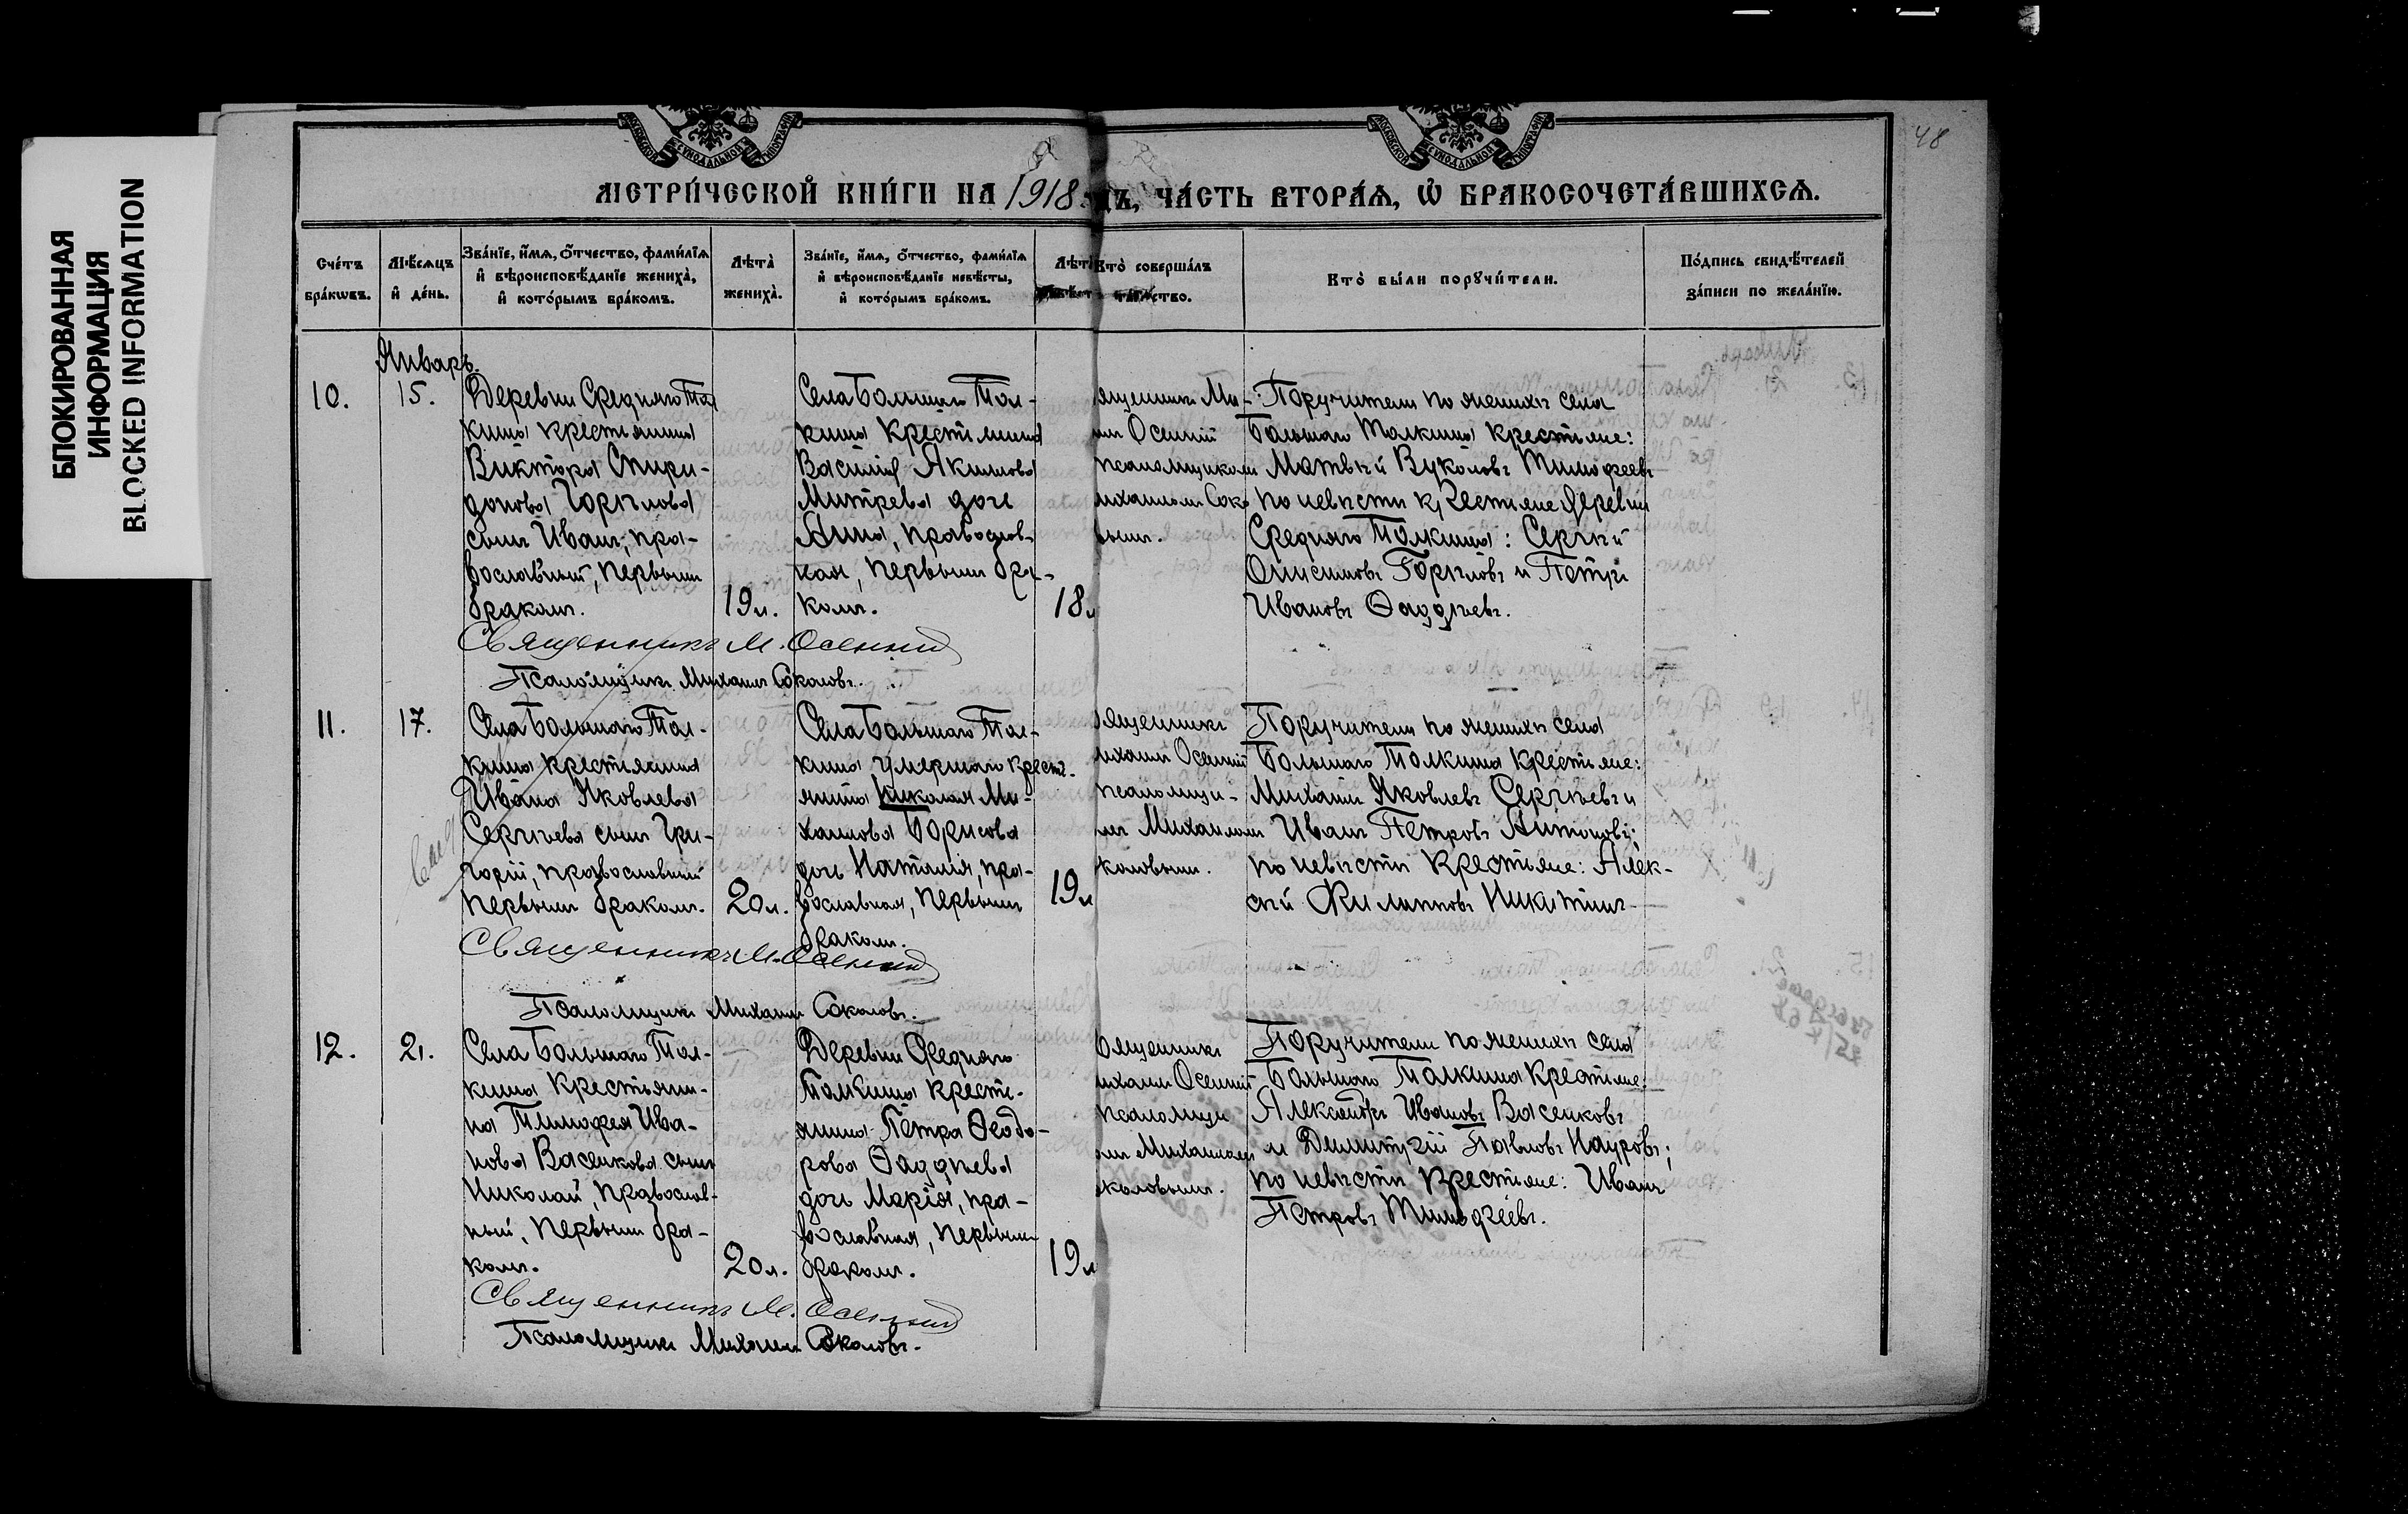 БЛОКИРОВАННАЯ
ИНФОРМАЦИЯ
BLOCKED INFORMATION
48
МЕТРИ́ЧЕСКОЙ КНИ́ГИ НА 1918 ДЪ, ЧА́СТЬ ВТОРА́Ѧ, Ѽ БРАКОСОЧЕТА́ВШИХСѦ.
Сче́тъ бра́кѡвъ.
Мѣ́сѧцъ и҆ де́нь.
Зва́нїе, и҆́мѧ, ѻ҆́тчество, фами́лїѧ и҆ вѣроисповѣ́данїе жениха̀, и҆ кото́рымъ бра́комъ.
Лѣта̀ жениха̀.
Зва́нїе, и҆́мѧ, ѻ҆́тчество, фами́лїѧ и҆ вѣроисповѣ́данїе невѣ́сты, и҆ кото́рымъ бра́комъ.
Кто̀ соверша́лъ
Кто̀ бы́ли порꙋчи́тели.
По́дпись свидѣ́телей за́писи по жела́нїю.
Январь.
10.
15.
Деревни Средняго Тол
кина крестьянина
Виктора Спири-
донова Горѣлова
сынъ Иванъ, пра-
вославный, первымъ
бракомъ.
19 л.
Села Большаго Тол-
кина крестьянина
Василія Якимова
Митрева дочь
Анна, православ-
ная, первымъ бра-
комъ.
18 л
ященникъ Ми-
илъ Осенній
псаломщикомъ
ихаиломъ Соко
вымъ.
Поручители по женихѣ села
Большаго Толкина крестьяне:
Матвѣй Вуколовъ Тимофеевъ
по невѣстѣ крестьяне деревни
Средняго Толкина: Сергѣй
Онисимовъ Горѣловъ и Петръ
Ивановъ Ѳаддѣевъ.
Священникъ М. Осенній
Псаломщикъ Михаилъ Соколовъ.
11.
17.
Села Большаго Тол-
кина крестьянина
Ивана Яковлева
Сергѣева сынъ Гри-
горій, православный
первымъ бракомъ.
20 л.
Села Большаго Тол-
кина умершаго крестъ-
янина Николая Ми-
хаилова Борисова
дочь Наталія, пра-
вославная, первымъ
бракомъ.
19 л
ященникъ
ихаилъ Осенній
псаломщи-
мъ Михаиломъ
коловымъ.
Поручители по женихѣ села
Большаго Толкина крестьяне:
Михаилъ Яковлевъ Сергѣевъ и
Иванъ Петровъ Антоновъ;
по невѣстѣ крестьяне: Алек-
сѣй Филипповъ Никитинъ
Священникъ М. Осенній
Псаломщикъ Михаилъ Соколовъ.
12.
21.
Села Большаго Тол-
кина крестьяни-
на Тимофея Ива-
нова Васенкова сынъ
Николай, православ-
ный, первымъ бра-
комъ.
20 л.
Деревни Средняго
Толкина кресть-
янина Петра Ѳеодо-
рова Ѳаддѣева
дочь Марія, пра-
вославная, первымъ
бракомъ.
19 л
вященникъ
ихаилъ Осенній
псаломщи
омъ Михаиломъ
околовымъ.
Поручители по женихѣ села
Большаго Толкина крестьяне:
Александръ Ивановъ Васенковъ
и Димитрій Павловъ Науровъ;
по невѣстѣ крестьяне: Иванъ
Петровъ Тимофеевъ.
Священникъ М. Осенній
Псаломщикъ Михаилъ Соколовъ.